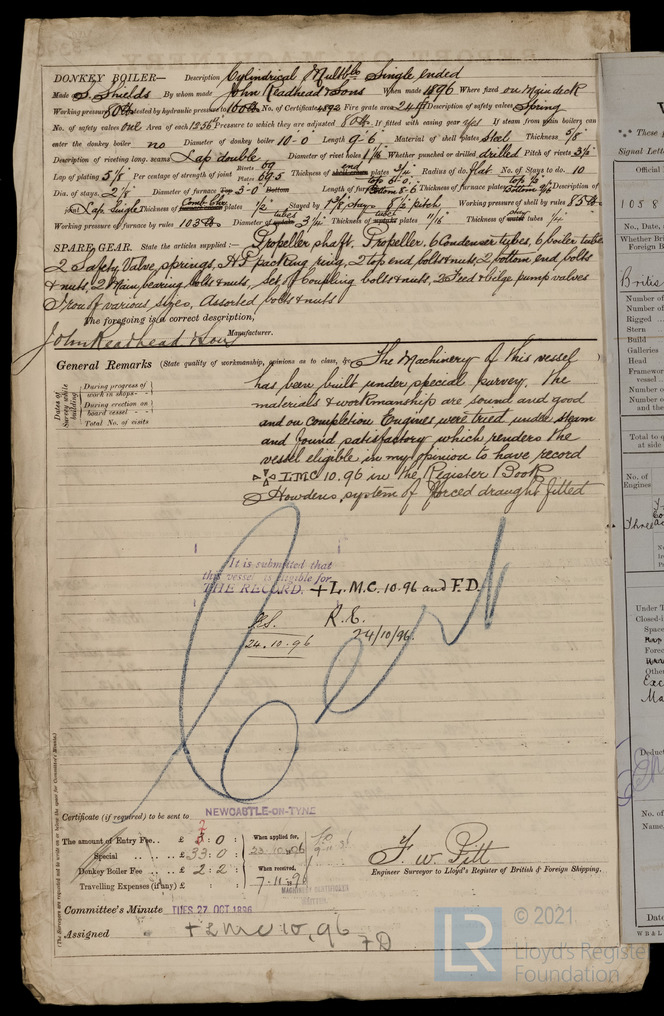 DONKEY BOILER— Description Cylindrical Multble Single ended
Made at S. Shields By whom made John Readhead & Sons When made 1896 Where fixed on Main deck
Working pressure 80 lb tested by hydraulic pressure to 160 lb No. of Certificate 4892 Fire grate area 24 Description of safety valves Spring
No. of safety valves one Area of each 12.56 Pressure to which they are adjusted 80 lb If fitted with easing gear yes If steam from main boilers can
enter the donkey boiler no Diameter of donkey boiler 10-0 Length 9-6 Material of shell plates steel Thickness 5/8
Description of riveting long. seams Lap double Diameter of rivet holes 1 1/16 Whether punched or drilled drilled Pitch of rivets 3 1/2
Lap of plating 5 1/8 Per centage of strength of joint Rivets 69 Plates 69.5 Thickness of end plates 3/4 Radius of do. flat No. of Stays to do. 10
Dia. of stays. 2 1/8 Diameter of furnace Top 3-0 Bottom Length of furnace top 6-0 Bottom 8-6 Thickness of furnace plates top 1/2 Bottom Description of
joint Lap Single Thickness of Comb. Chr plates 1/2 Stayed by 1 7/8 stays 8 1/2 pitch Working pressure of shell by rules 85 lb
Working pressure of furnace by rules 103 lb Diameter of tubes 3 1/4 Thickness of tubes plates 11/16 Thickness of stay tubes 1/4
SPARE GEAR. State the articles supplied:— Propeller shaft. Propeller, 6 Condenser tubes, 6 boiler tubes
2 Safety Valve springs, HP packing ring, 2 top end bolts & nuts, 2 bottom end bolts
& nuts, 2 Main bearing bolts & nuts, Set of Coupling bolts & nuts, 3 Feed & bilge pump valves
Iron of various sizes, Assorted bolts & nuts
The foregoing is a correct description,
John Readhead & Sons Manufacturer.
General Remarks (State quality of workmanship, opinions as to class, &c. The Machinery of this vessel
has been built under special survey. The
materials & workmanship are sound and good
and on completion Engines were tried under steam
and found satisfactory which renders the
vessel eligible in my opinion to have record
LMC 10.96 in the Register Book
Howdens system of forced draught fitted
Dates of Survey while building
During progress of work in shops - -
During erection on board vessel - - -
Total No. of visits
It is submitted that
this vessel is eligible for
THE RECORD. + L.M.C. 10.96 and F.D.
24.10.96
R.S.
24/10/96
Cert
Certificate (if required) to be sent to NEWCASTLE-ON-TYNE
The amount of Entry Fee.. £ 2 : 0 : When applied for,
Special .. .. £ 33 : 0 : 23.10.1896
Donkey Boiler Fee .. £ 2 : 2 : When received,
Travelling Expenses (if any) £ : : 7.11.1896
F. W. Pitt
Engineer Surveyor to Lloyd's Register of British & Foreign Shipping.
MACHINERY CERTIFICATE
WRITTEN.
Committee's Minute TUES 27 OCT 1896
Assigned + LMC 10,96
FD
(The Surveyors are requested not to write on or below the space for Committee's Minute.)
© 2021
Lloyd's Register
Foundation
LR
Signal Letters
Official
1058
No., Date,
Whether British
Foreign B
British
Number of
Number of
Rigged ...
Stern
Build
Galleries
Head
Framework
vessel
Number of
Number of
and the
Total to
at side
No. of
Engines
Three
Under T
Closed-i
Space
Forec
Other
Exc
Deduct
No. of
Name,
Date